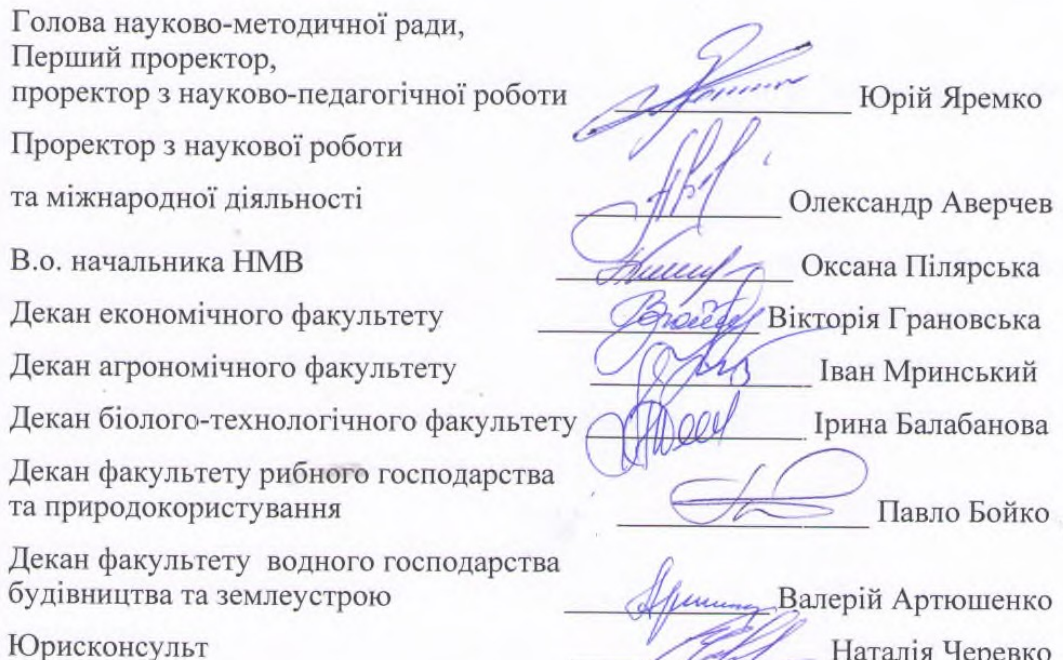 Голова науково-методичної ради,
Перший проректор,
проректор з науково-педагогічної роботи Юрій Яремко
Проректор з наукової роботи
та міжнародної діяльності Олександр Аверчев
В.о. начальника НМВ Оксана Пілярська
Декан економічного факультету Вікторія Грановська
Декан агрономічного факультету Іван Мринський
Декан біолого-технологічного факультету Ірина Балабанова
Декан факультету рибного господарства
та природокористування Павло Бойко
Декан факультету водного господарства
будівництва та землеустрою Валерій Артюшенко
Юрисконсульт Наталія Черевко